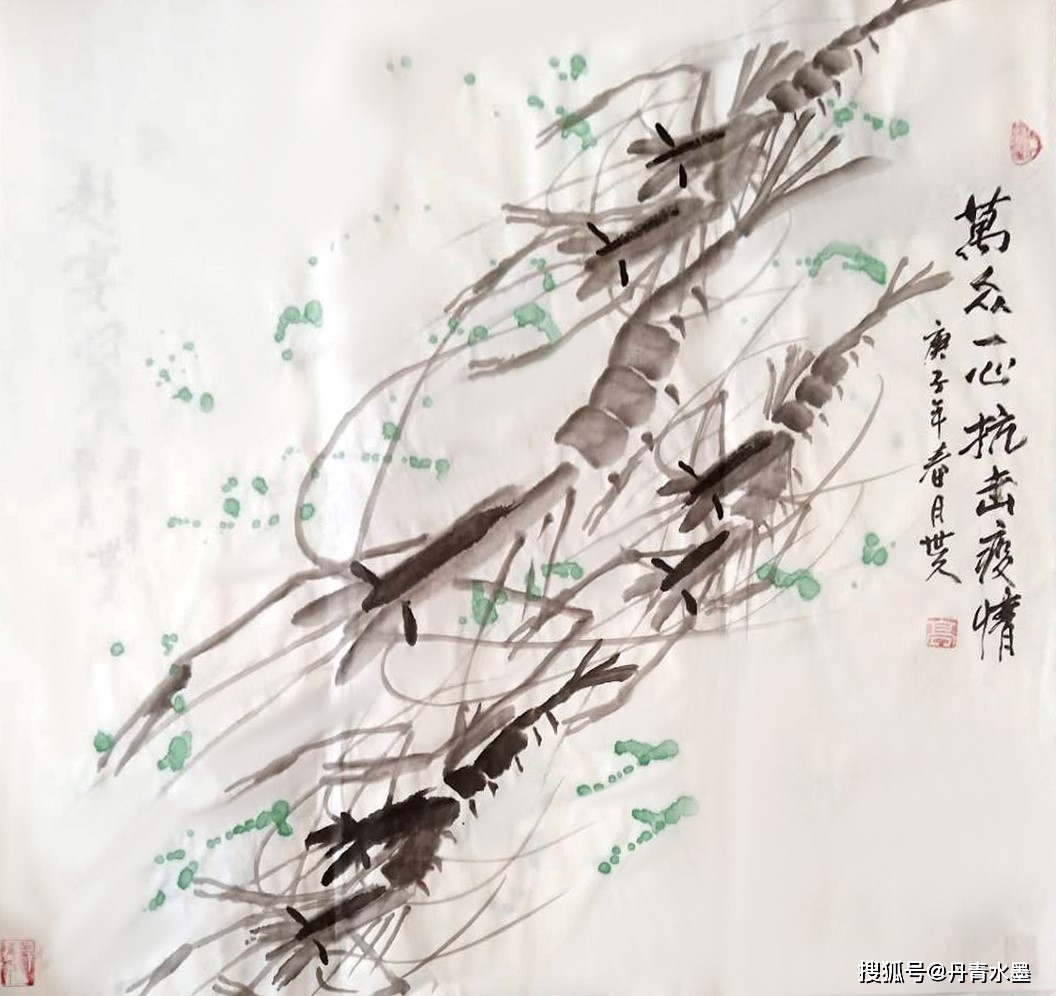 萬众一心抗击疫情
庚子年春月世元
搜狐号@丹青水墨